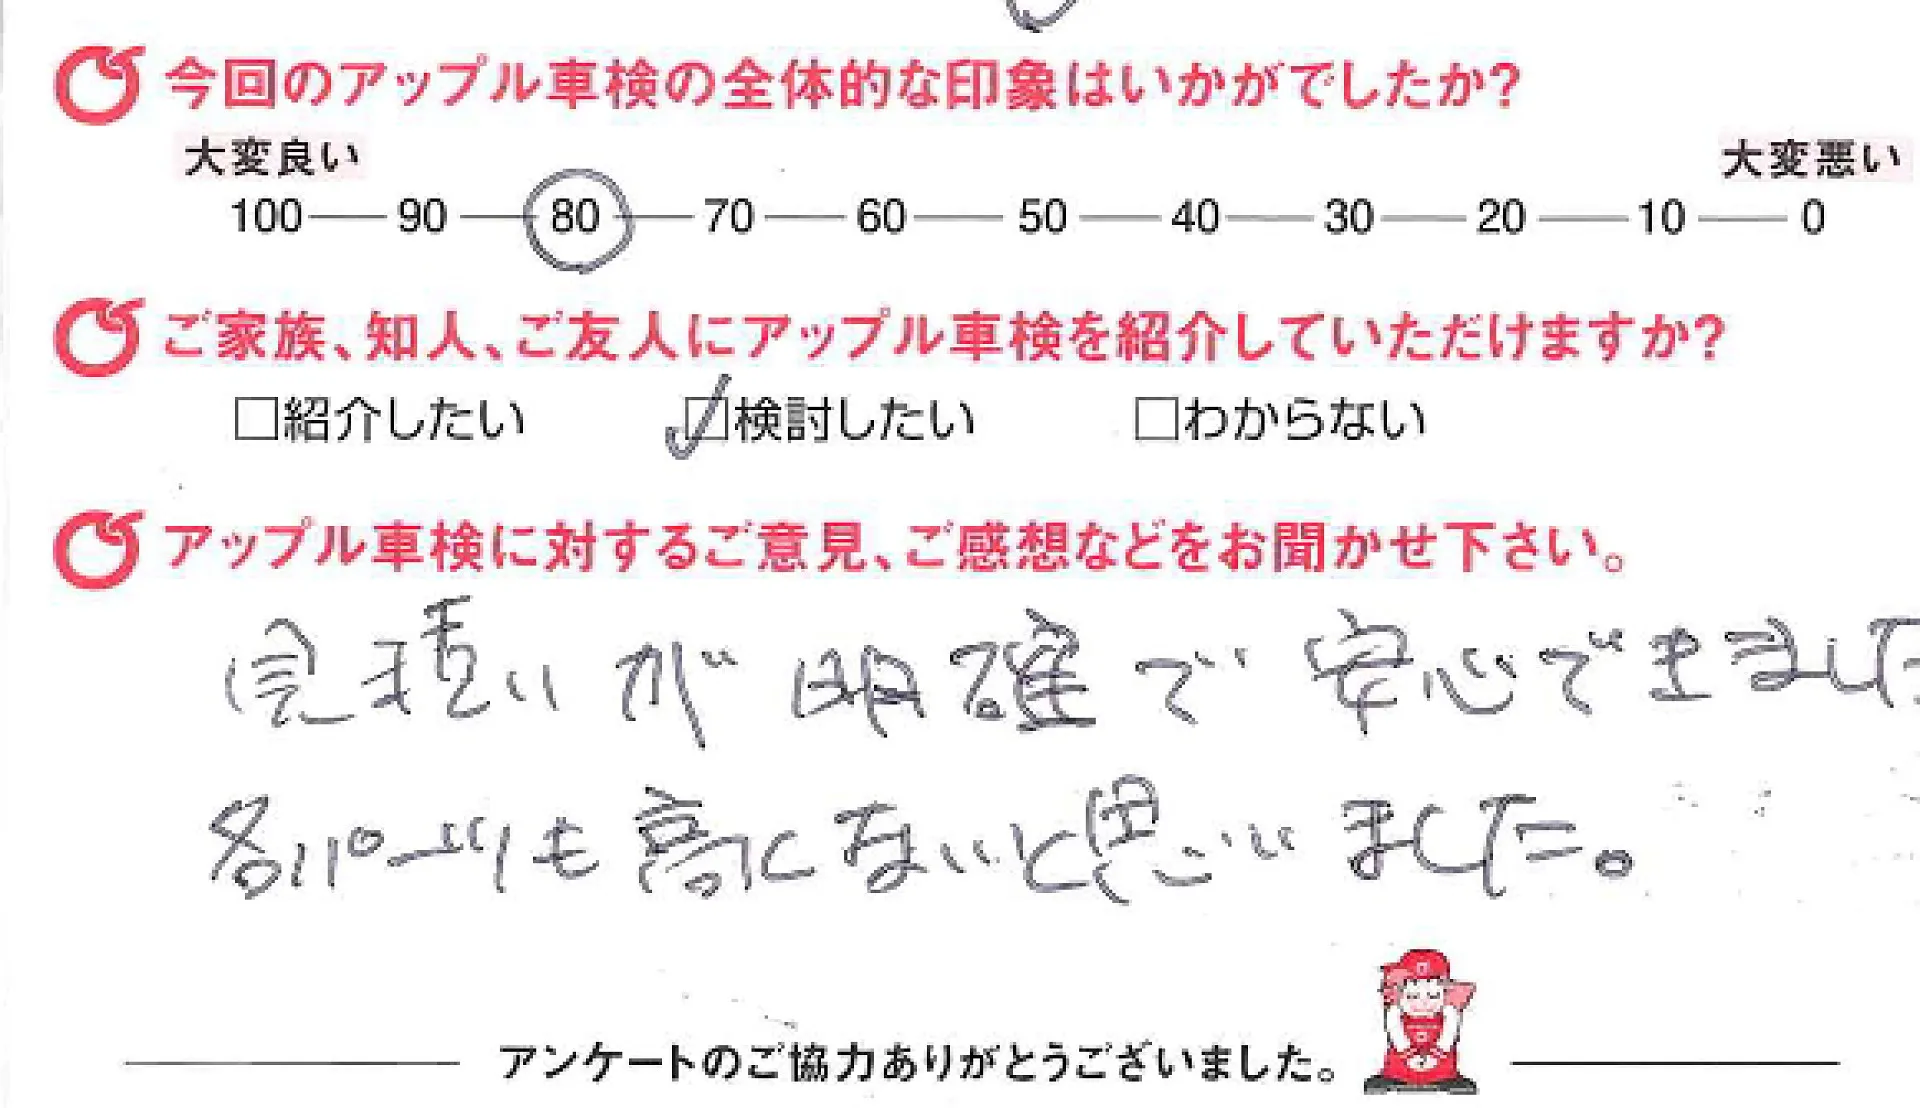 今回のアップル車検の全体的な印象はいかがでしたか?
大変良い 大変悪い
100 90 80 70 60 50 40 30 20 10 0
ご家族、知人、ご友人にアップル車検を紹介していただけますか?
□紹介したい □検討したい □わからない
アップル車検に対するご意見、ご感想などをお聞かせ下さい。
見積いが明確で安心できました
各パーツも高くないと思いました。
アンケートのご協力ありがとうございました。